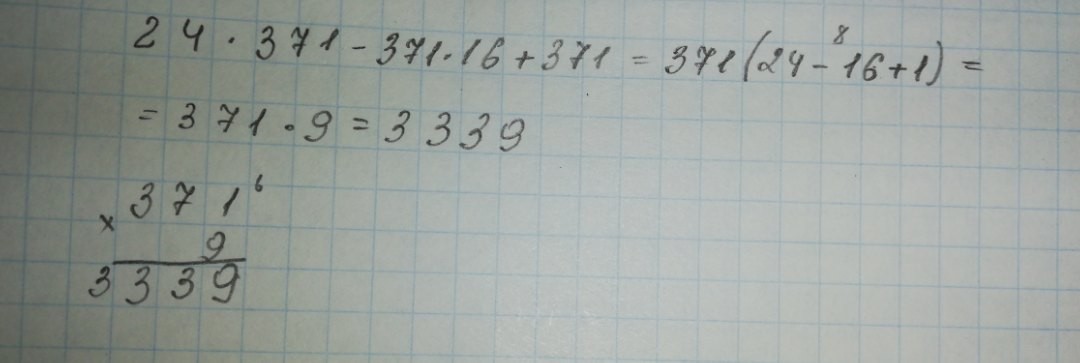 24 · 371 - 371 · 16 + 371 = 371(24 - 16 + 1) =
8
= 371 · 9 = 3339
× 371 6
9
3339